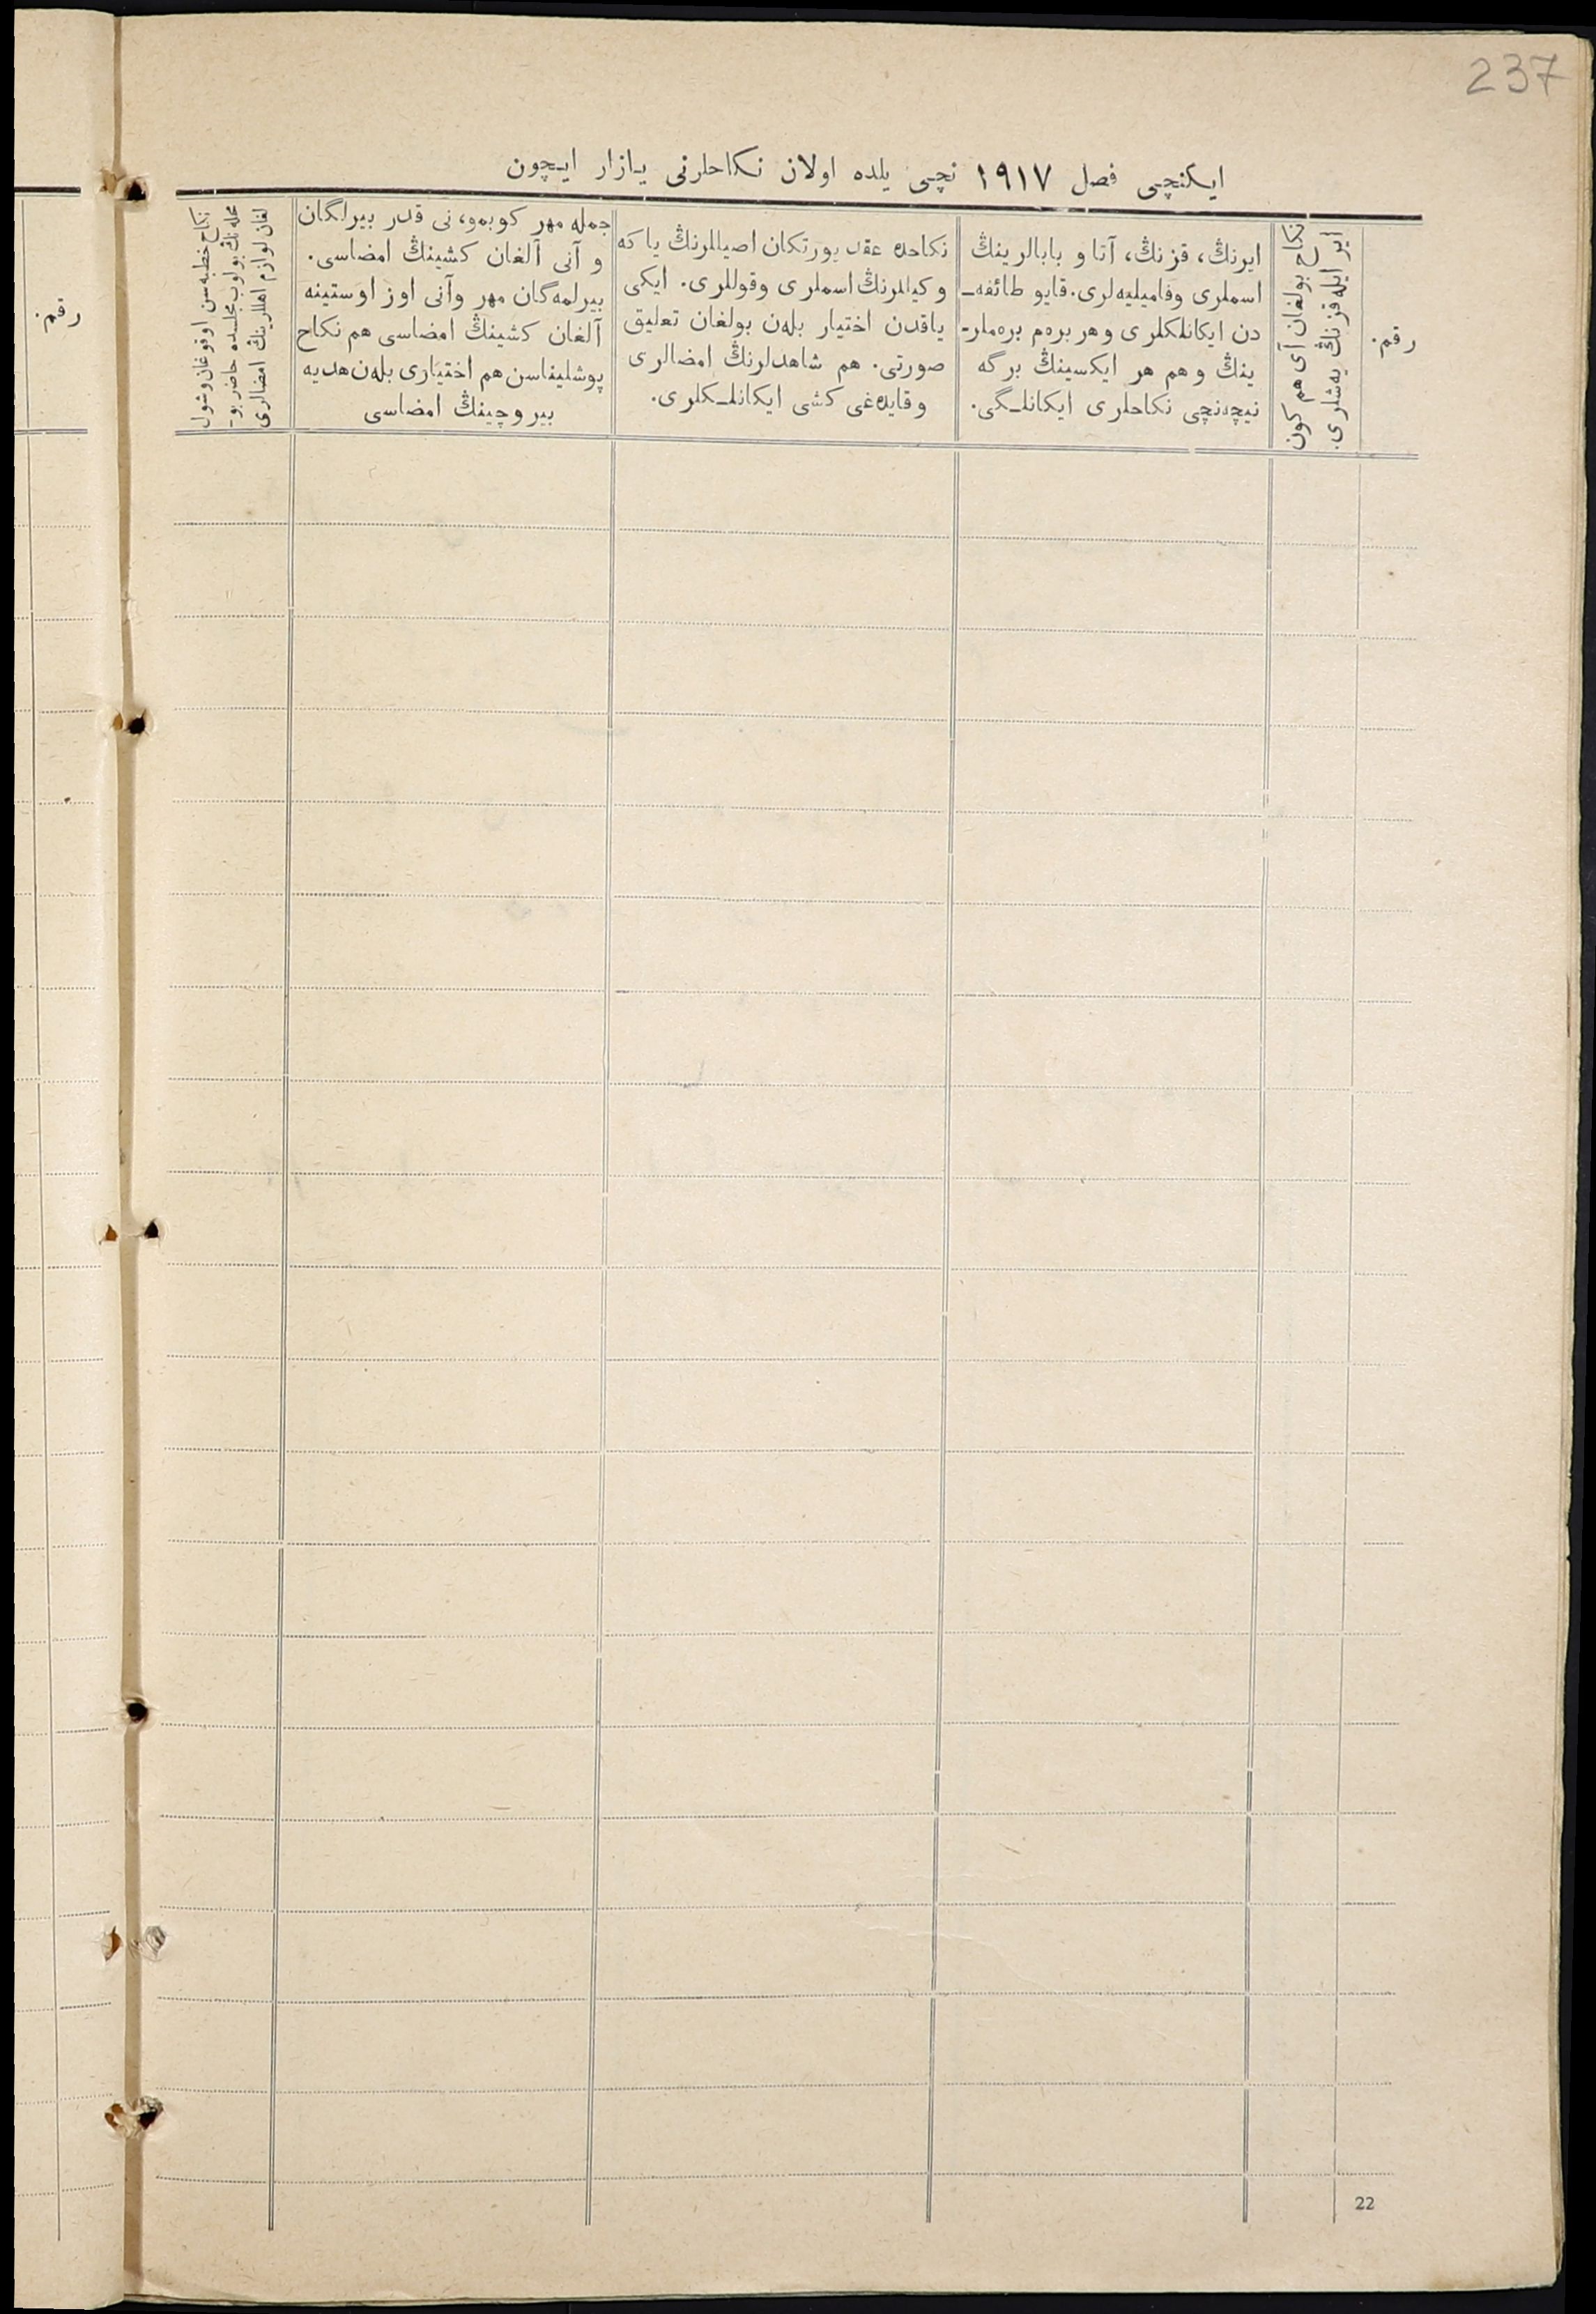 237
ایکنچی فصل ١٩١٧ نچی یلده اولان نکاحلرنی یازار ایچون
رقم.
ایر ایله قزنڭ یه‌شلری.
نکاح بولغان آی هم کون
ایرنڭ، قزنڭ، آتا و بابالرینڭ
اسملری وفامیلیه‌لری. قایو طائفه‌ـ
دن ایکانلکلری و هر بره‌م بره‌ملر-
ینڭ و هم هر ایکسینڭ برگه
نیچه‌نچی نکاحلری ایکانلـگی.
نکاحده عقد یورتکان اصیللرنڭ یا که
وکیللرنڭ اسملری وقوللری. ایکی
یاقدن اختیار بله‌ن بولغان تعلیق
صورتی. هم شاهدلرنڭ امضالری
وقایده‌غی کشی ایکانلـکلری.
جمله مهر کوبمو، نی قدر بیرلگان
و آنی آلغان کشینڭ امضاسی.
بیرلمه‌گان مهر وآنی اوز اوستینه
آلغان کشینڭ امضاسی هم نکاح
پوشلیناسن هم اختیاری بله‌ن هدیه
بیروچینڭ امضاسی
نکاح خطبه‌سن اوقوغان وشول
محله‌نڭ بولوب مجلسده حاضر بو-
لغان لوازم اهللرینڭ امضالری
رقم.
22